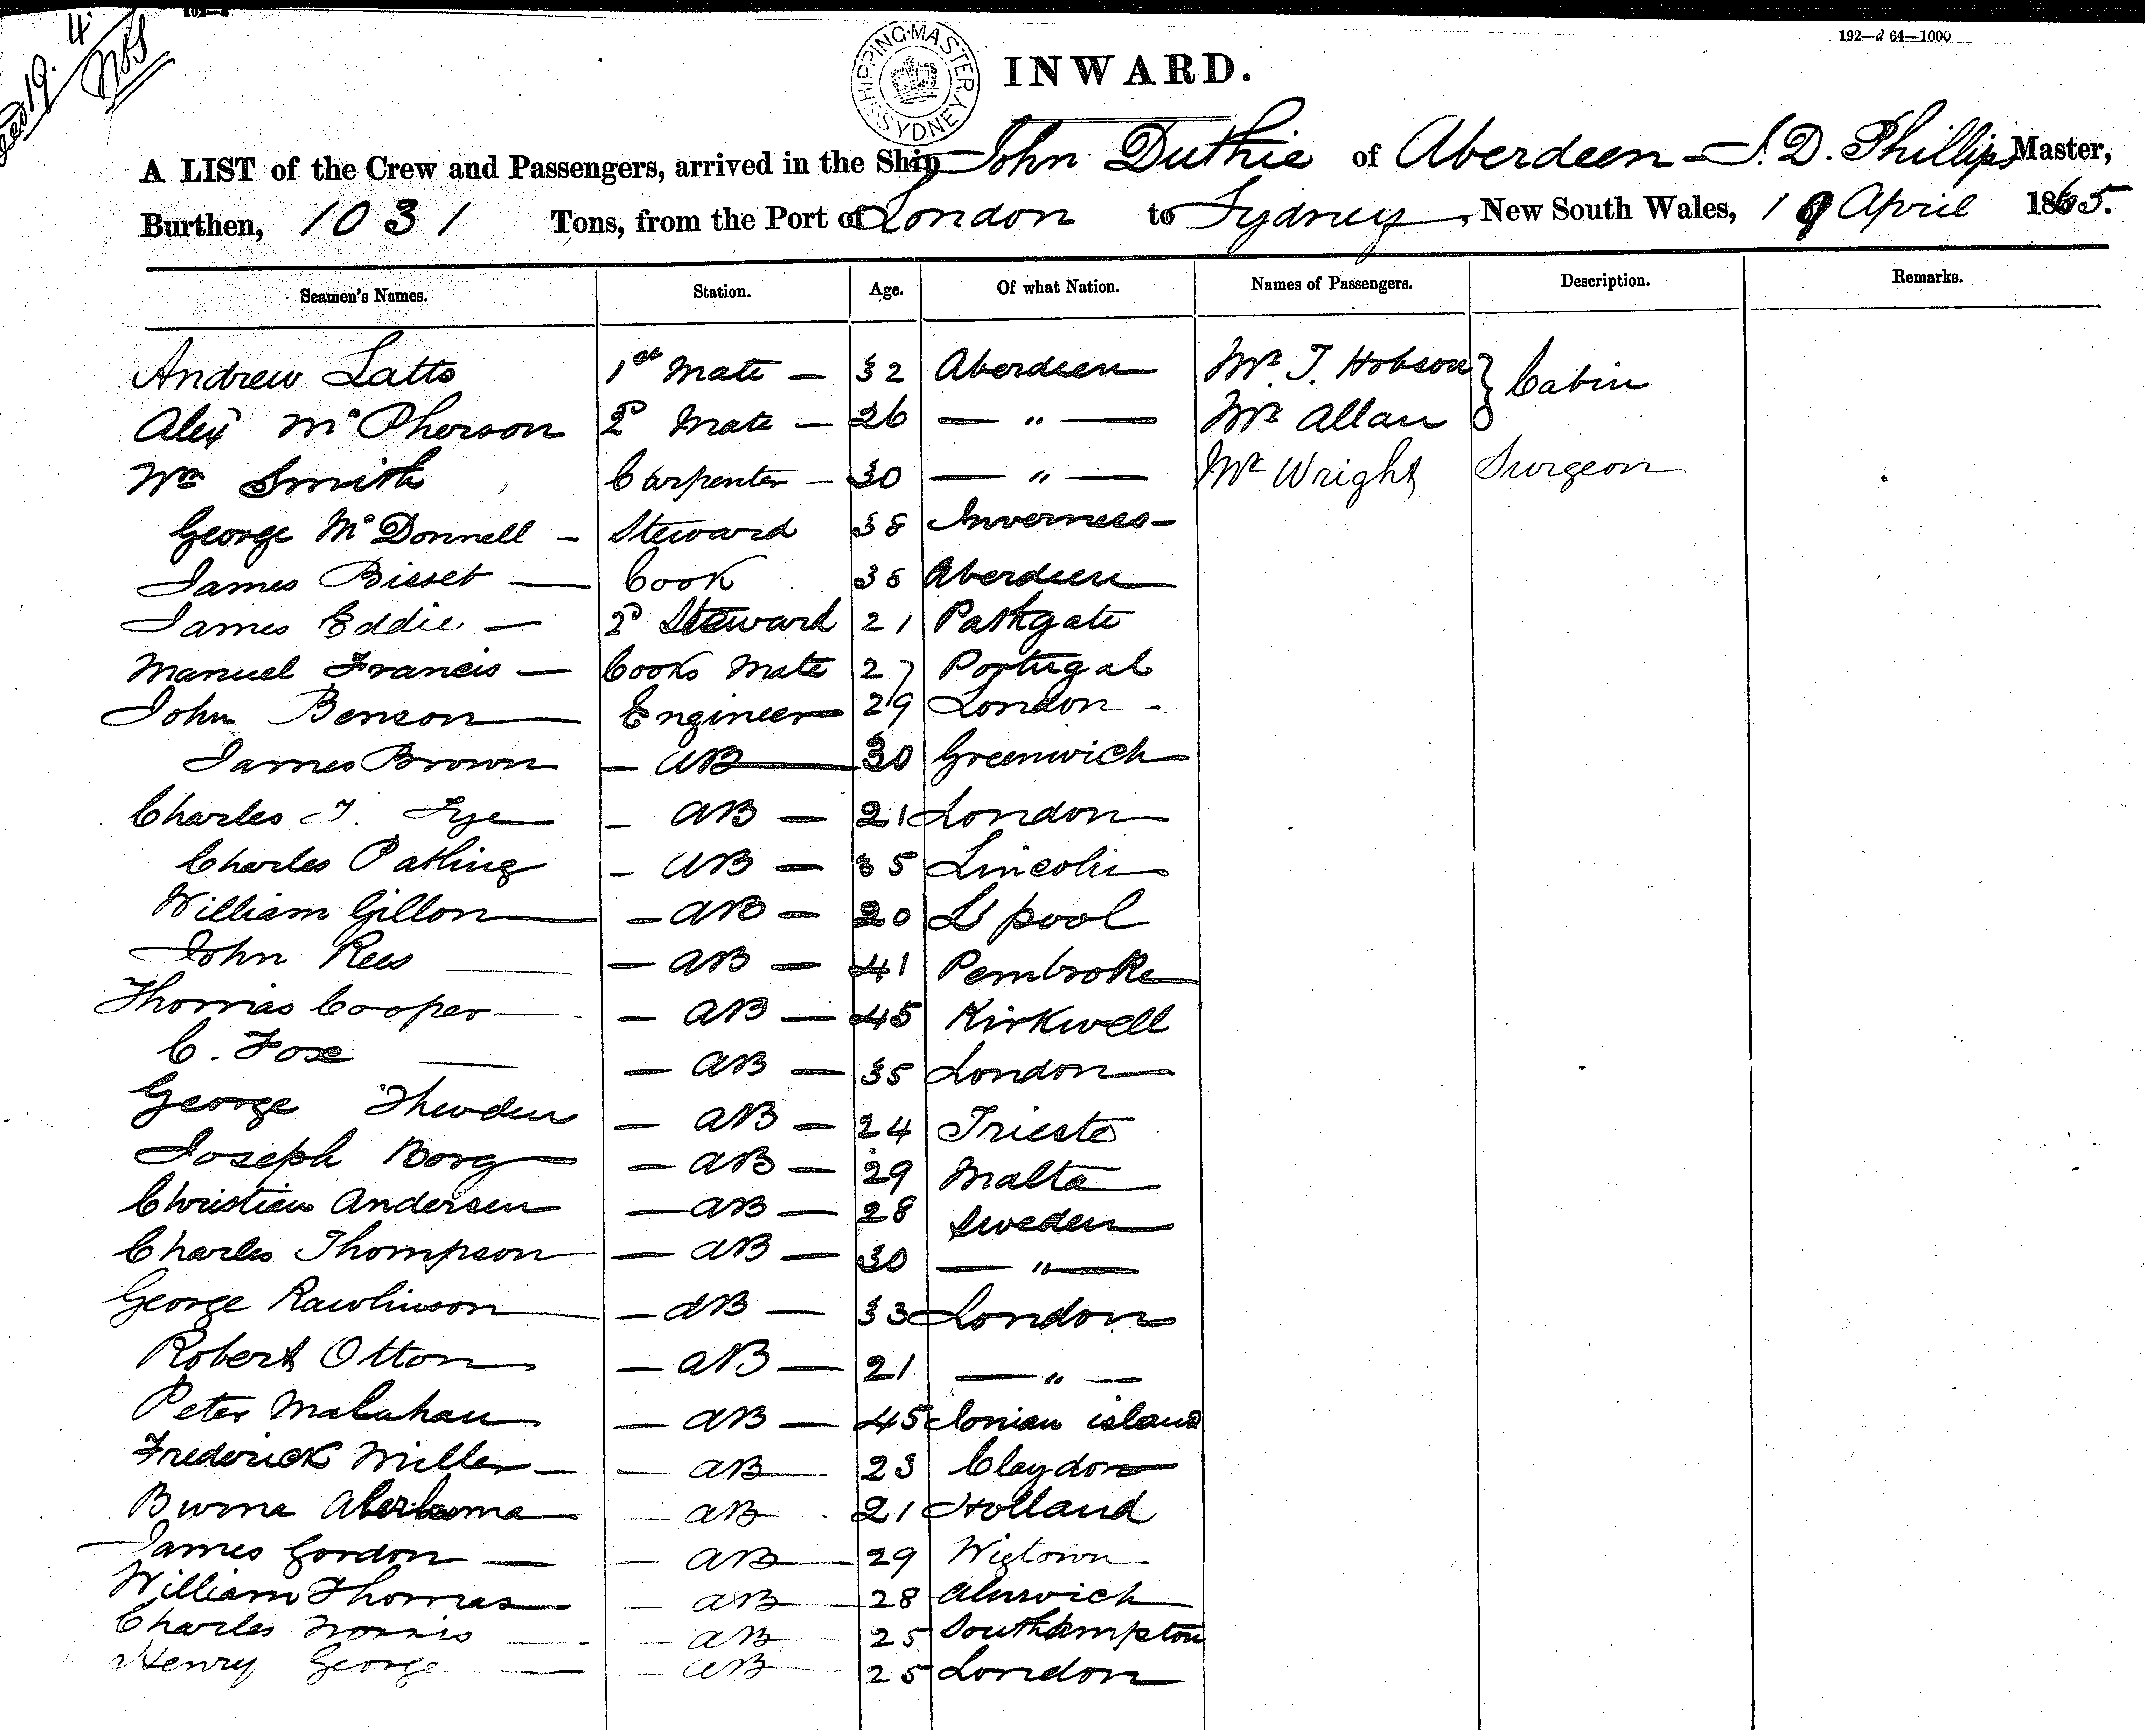 192—d 64—1000
SHIPPING MASTER SYDNEY
INWARD.
A LIST of the Crew and Passengers, arrived in the Ship John Duthie of Aberdeen – J. D. Phillips Master,
Burthen, 1031 Tons, from the Port of London to Sydney, New South Wales, 19 April 1865.
Seamen's Names. Station. Age. Of what Nation. Names of Passengers. Description. Remarks.
Andrew Latto 1st Mate — 32 Aberdeen Mr. J. Hobson } Cabin
Alexr McPherson 2d Mate — 26 — " — Mr Allan
Wm Smith Carpenter — 30 — " — Mr Wright Surgeon
George McDonnell — Steward 38 Inverness —
James Bisset — Cook 36 Aberdeen
James Eddie — 2d Steward 21 Pathgate
Manuel Francis — Cooks Mate 27 Portugal
John Benson — Engineer 29 London -
James Brown — AB — 30 Greenwich
Charles J. Tye — AB — 21 London
Charles Patling — AB — 35 Lincoln
William Gillon — AB — 20 L'pool
John Rees — AB — 41 Pembroke
Thomas Cooper — AB — 45 Kirkwell
C. Fox — AB — 35 London
George — AB — 24 Trieste
Joseph Borg — AB — 29 Malta
Christien Andersen — AB — 28 Sweden
Charles Thompson — AB — 30 — " —
George Rawlinson — AB — 33 London
Robert Otton — AB — 21 — " —
Peter — AB — 45 Ionian island
Frederick Miller — AB 23 Claydon
— AB 21 Holland
James Gordon — AB — 29 Wigtown
William Thomas — AB — 28 Alnwich
Charles Norris — AB 25 Southampton
Henry George — AB 25 London